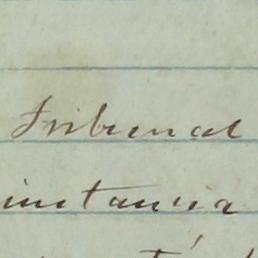 Tribunal
instancia